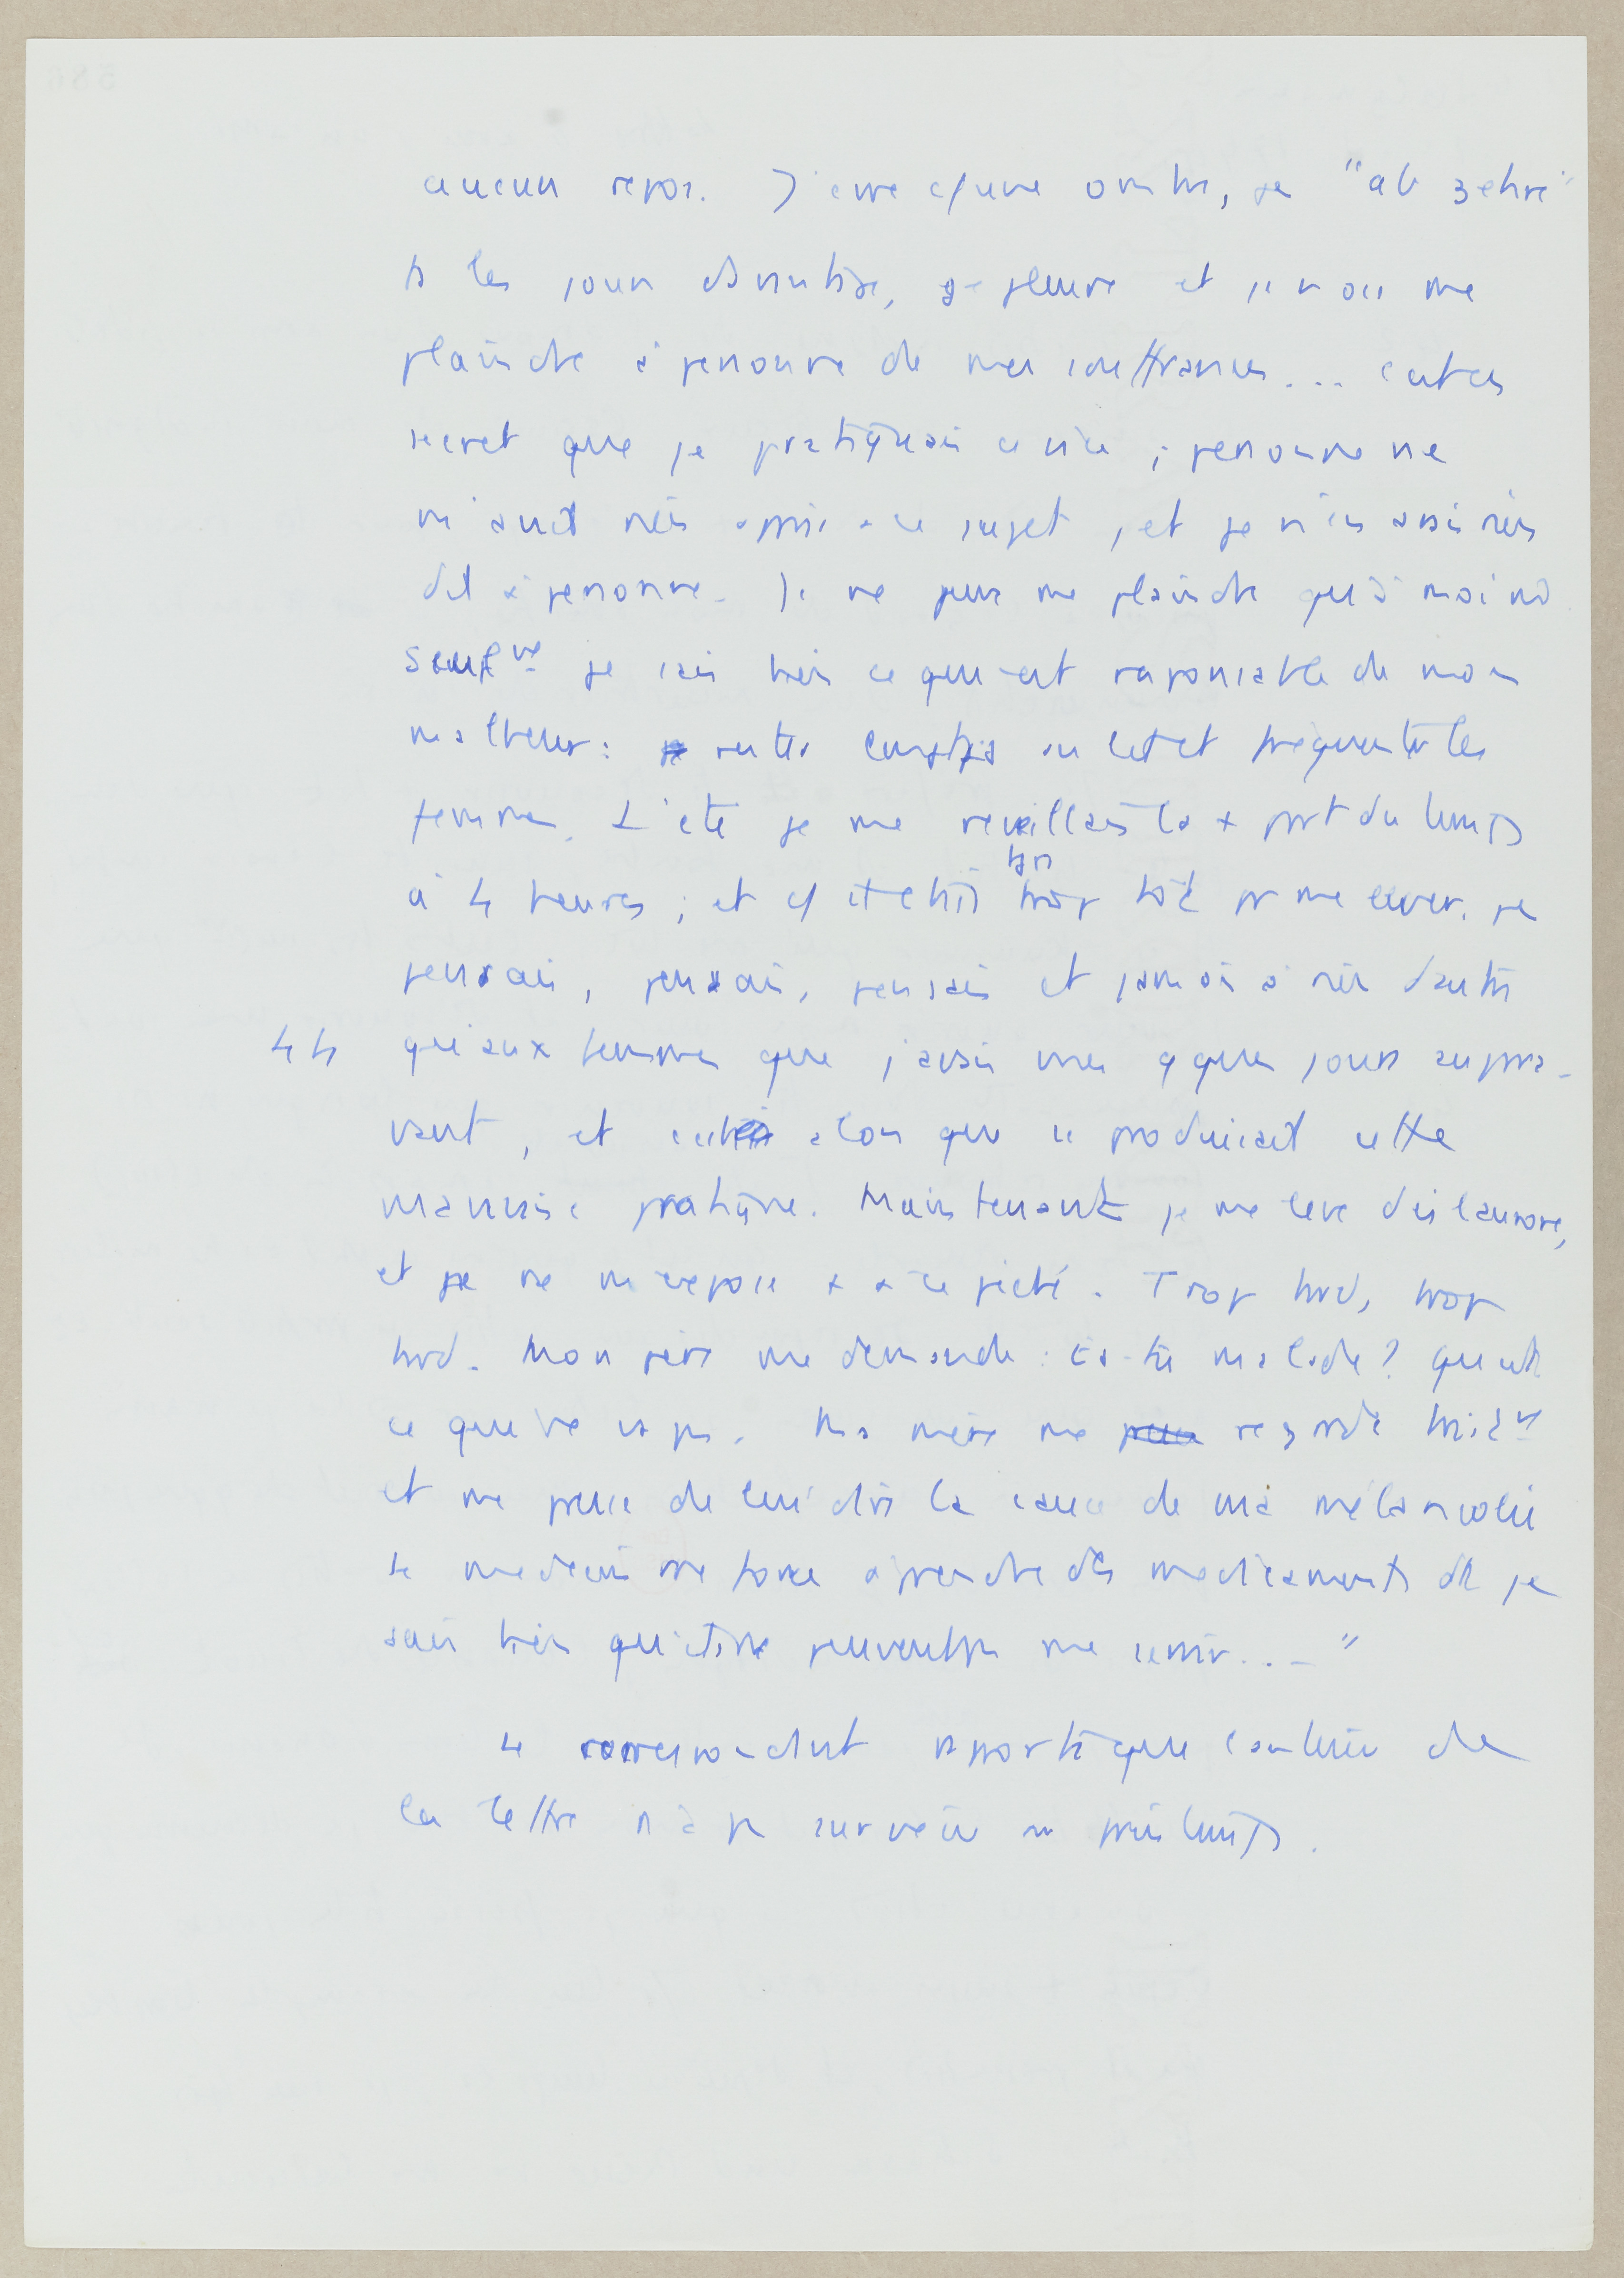 aucun repos. J'erre c/ une ombre, je "ab zehre"
ts les jours davantage, je pleure et je n'ose me
plaindre à personne de mes souffrances... C'est en
secret que je pratiquais ce vice ; personne ne
m'avait rien appris à ce sujet, et je n'en avais rien
dit à personne. Je ne peux me plaindre qu'à moi m̂
Seulmt je sais bien ce qui est responsable de mon
malheur: rester longtps au lit et fréquenter les
femmes. L'été je me réveillais la + part du temps
à 4 heures ; et c/ il était bn trop tôt pr me lever. je
pensais, pensais, pensais et jamais à rien d'autre
44 qu'aux femmes que j'avais vues qques jours aupara-
vant, et c'était alors que se produisait cette
mauvaise pratique. Maintenant je me lève dès l'aurore,
et je ne m'expose + à ce péché. Trop tard, trop
tard. Mon père me demande : Es-tu malade? Qu'est
ce qui ne va pas. Ma mère me regarde tristt
et me presse de lui dire la cause de ma mélancolie
Le médecin me force à prendre des médicaments dt je
sais bien qu'ils ne peuvent pas me servir... "
Le correspondant rapporte que l'auteur de
la lettre n'a pas survécu au printemps.